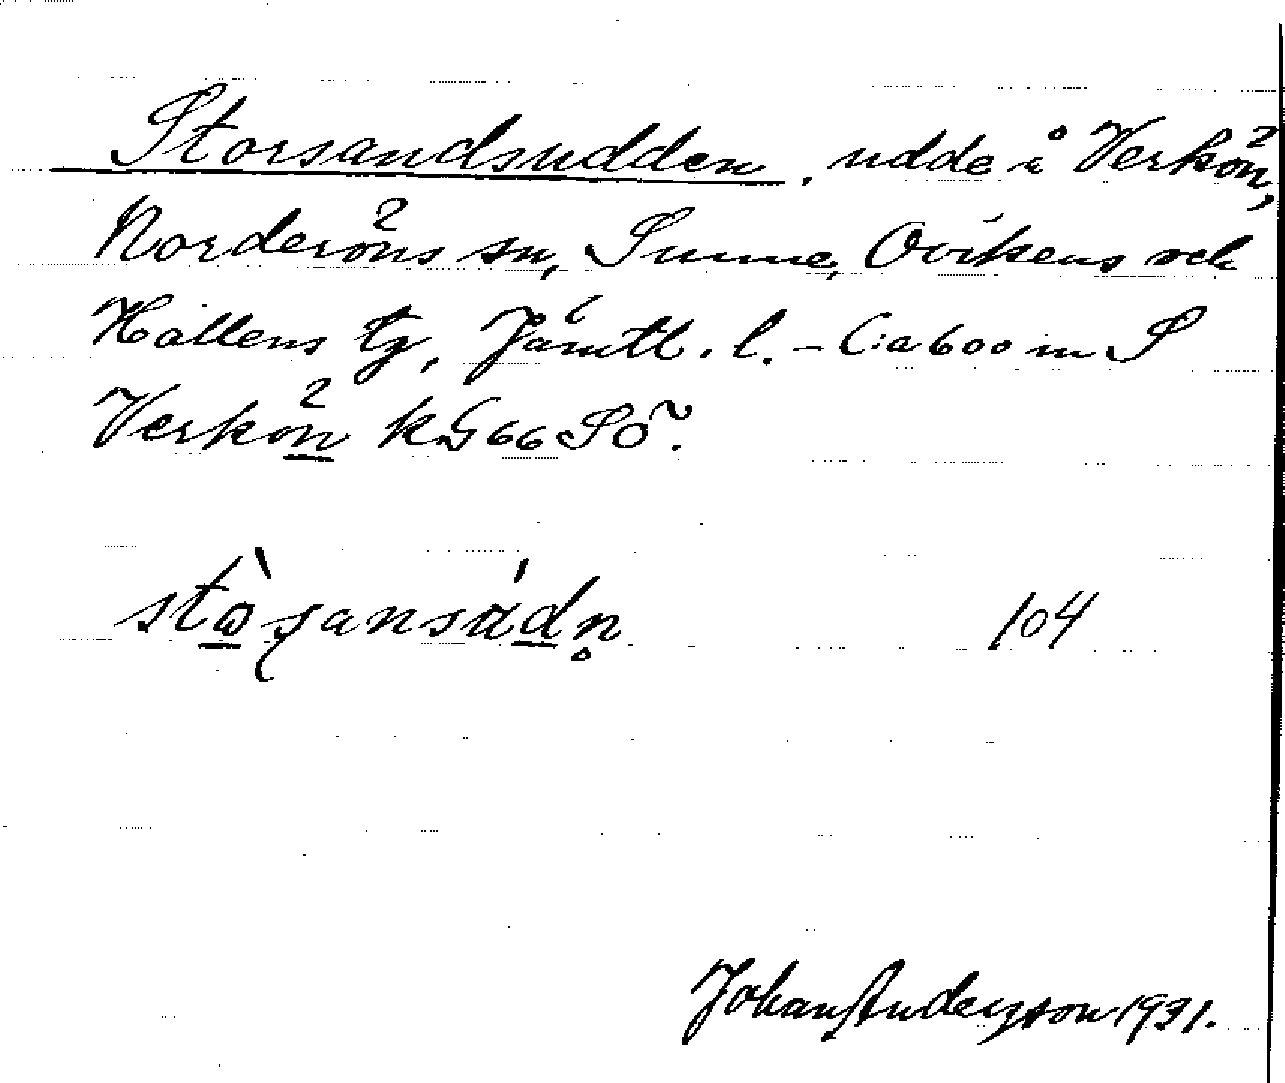 Storsandsudden, udde å Verkön,
Norderöns sn, Sunne, Ovikens och
Hallens tg, Jämtl. l. - C:a 600 m S
Verkön k. G 66 SÖ.
104
Johan Andersson 1931.